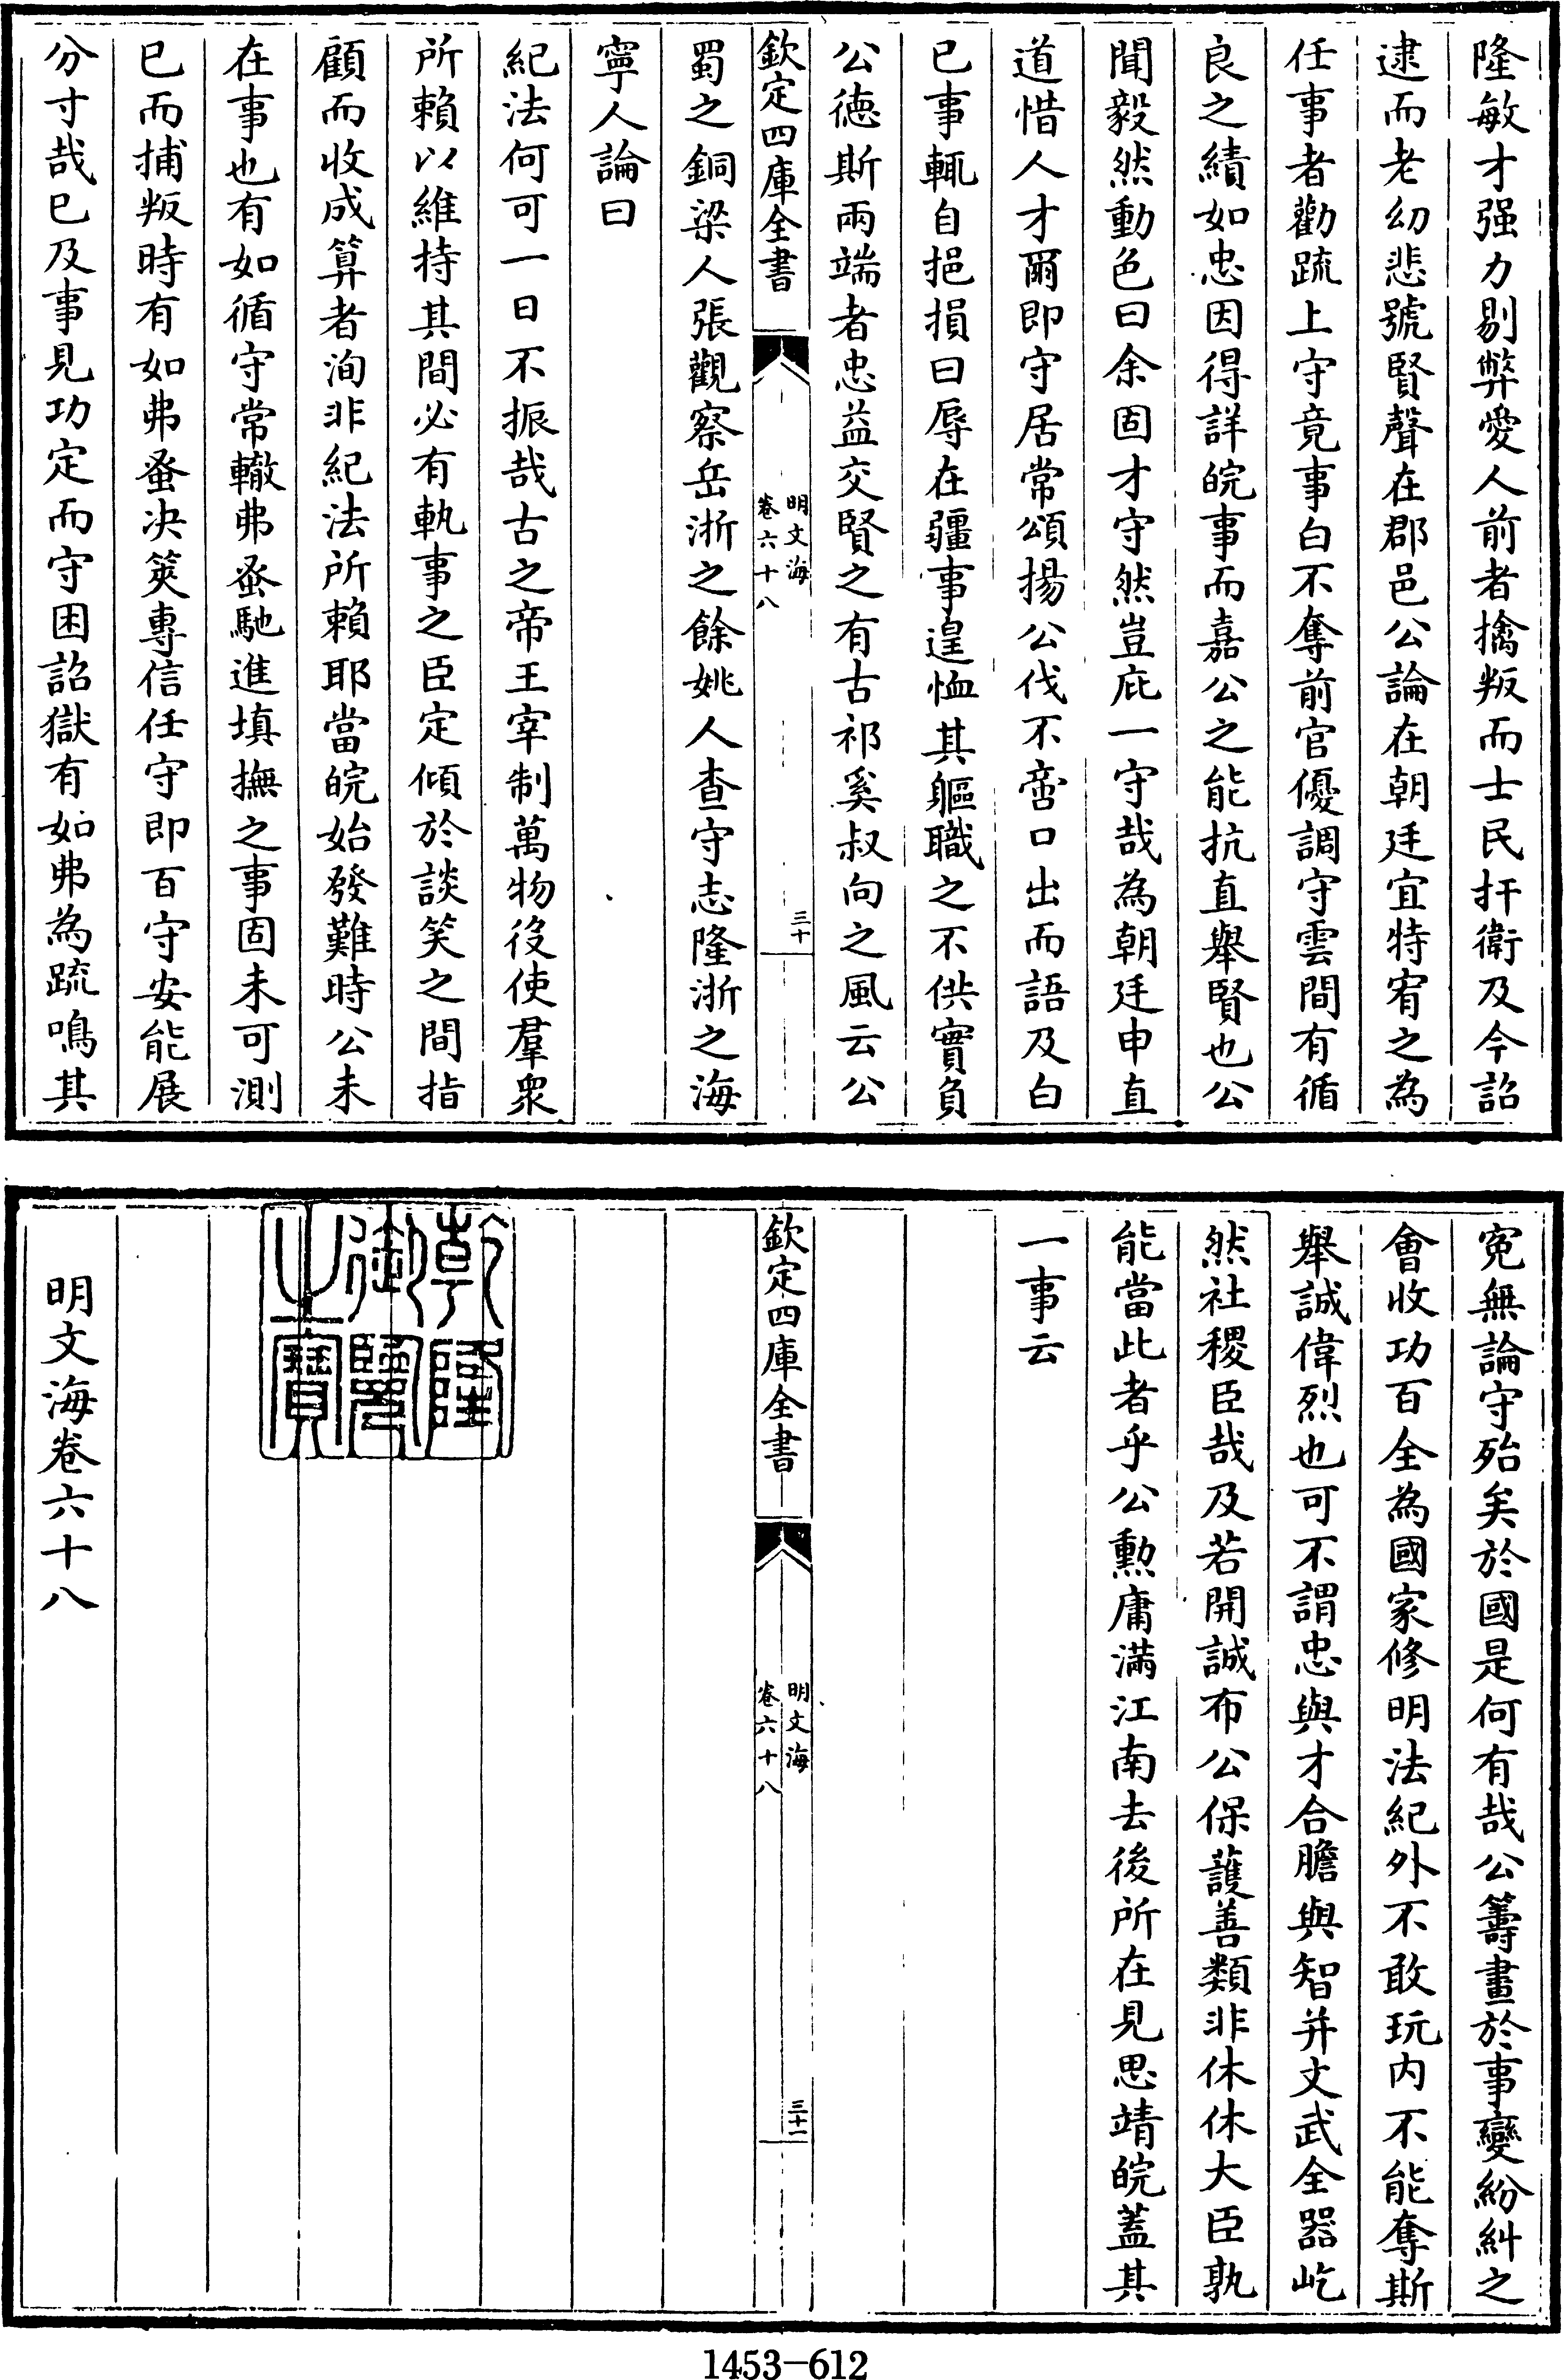 隆敏才强力剔弊愛人前者擒叛而士民扞衛及今詔
逮而老幼悲號賢聲在郡邑公論在朝廷宜特宥之為
任事者勸疏上守竟事白不奪前官優調守雲間有循
良之績如忠因得詳皖事而嘉公之能抗直舉賢也公
聞毅然動色曰余固才守然豈庇一守哉為朝廷申直
道惜人才爾即守居常頌揚公伐不啻口出而語及白
已事輒自挹損曰辱在疆事遑恤其軀職之不供實負
公德斯兩端者忠益交賢之有古祁奚叔向之風云公
欽定四庫全書
明文海
卷六十八
三十
蜀之銅梁人張觀察岳浙之餘姚人查守志隆浙之海
寧人論曰
紀法何可一日不振哉古之帝王宰制萬物役使羣衆
所賴以維持其間必有執事之臣定傾於談笑之間指
顧而收成算者洵非紀法所賴耶當皖始發難時公未
在事也有如循守常轍弗蚤馳進填撫之事固未可測
已而捕叛時有如弗蚤決筴專信任守即百守安能展
分寸哉已及事見功定而守困詔獄有如弗為疏鳴其
冤無論守殆矣於國是何有哉公籌畫於事變紛糾之
會收功百全為國家修明法紀外不敢玩內不能奪斯
舉誠偉烈也可不謂忠與才合膽與智并文武全器屹
然社稷臣哉及若開誠布公保護善類非休休大臣孰
能當此者乎公勲庸滿江南去後所在見思靖皖蓋其
一事云
欽定四庫全書
明文海
卷六十八
三十一
乾隆
御覽
之寶
明文海卷六十八
1453-612